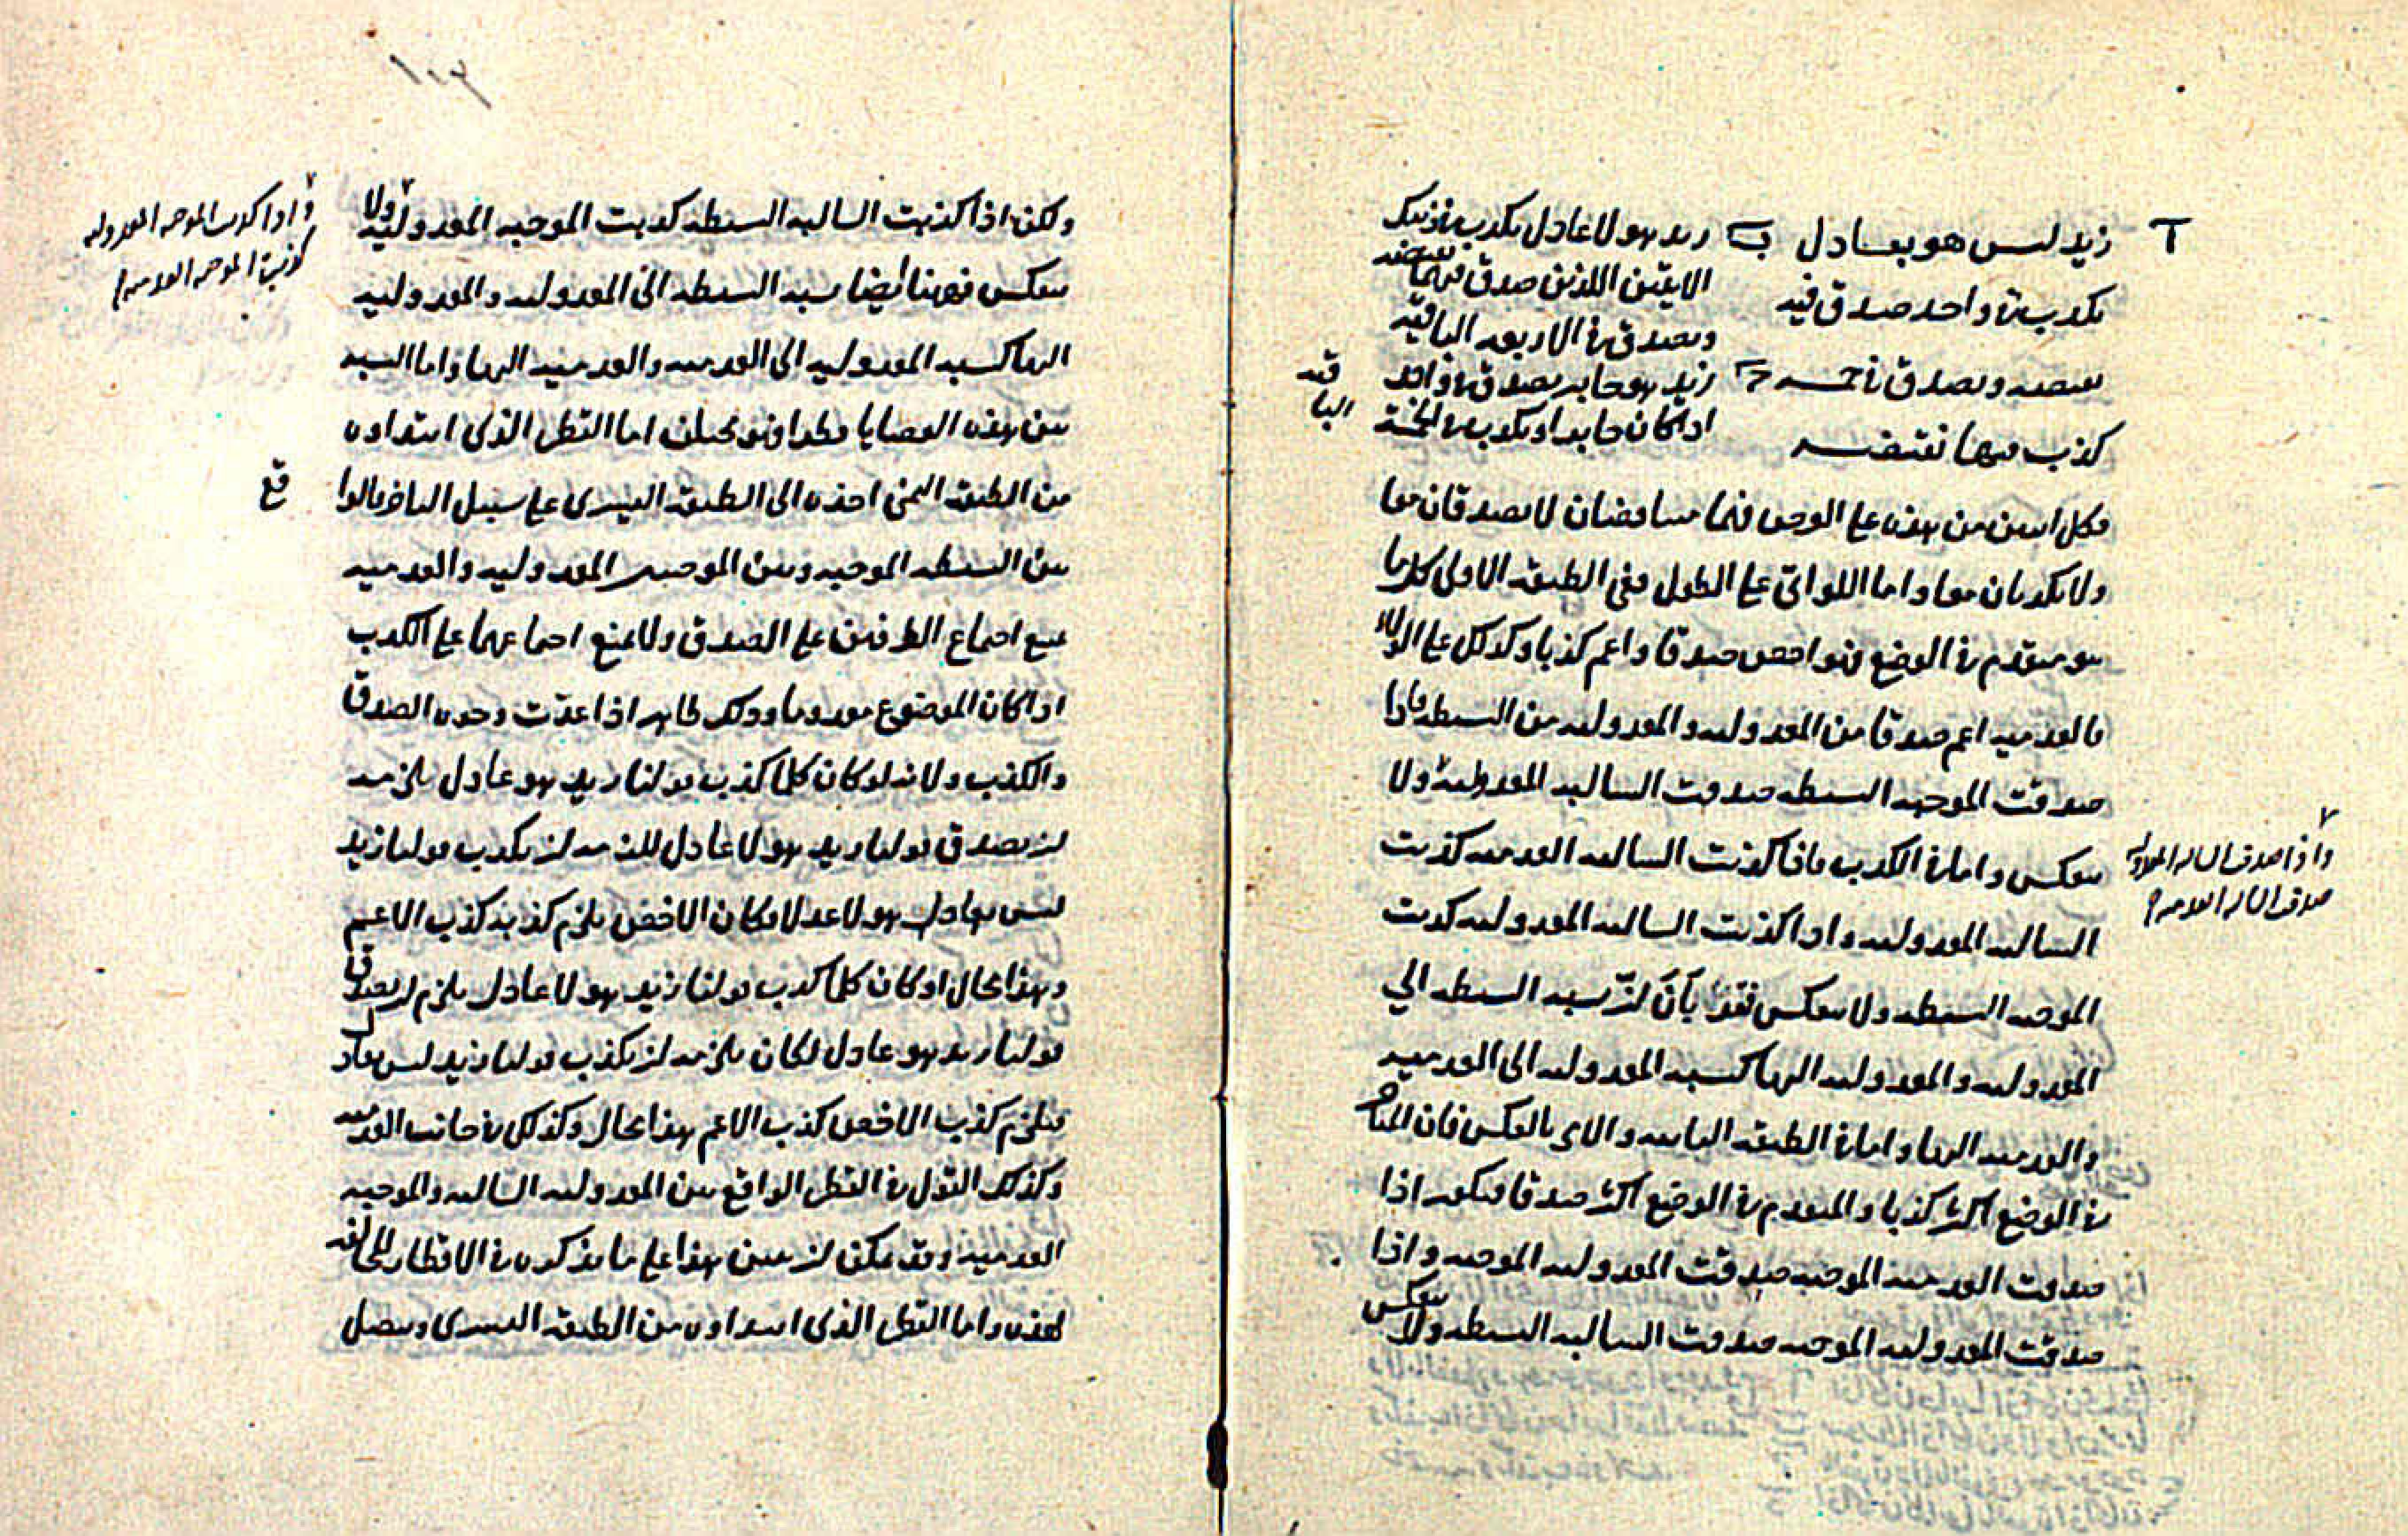 زيد ليس هو بعادل ب زيد هو لا عادل يكذب في ذينك
يكذب في واحد صدق فيه الاثنين اللذين صدق فيهما نقيضه
ويصدق في الاربعة الباقية
نقيضه ويصدق في خمسة ج زيد هو جاير يصدق في واحد
كذب فيها نقيضه اذا كان جايرا ويكذب في الخمسة
الباقية
فكل اثنين من هذه على العرض فهما متناقضان لا يصدقان معا
ولا يكذبان معا واما اللواتي على الطول ففي الطبقة الاولى كل ما
هو متقدم في الوضع فهو اخص صدقا واعم كذبا وكذلك على الولاء
فالعدمية اعم صدقا من المعدولية والمعدولية من البسيطة فاذا
صدقت الموجبة البسيطة صدقت السالبة المعدولية ولا
ينعكس واما في الكذب فاذا كذبت السالبة العدمية كذبت
السالبة المعدولية واذا كذبت السالبة المعدولية كذبت
الموجبة البسيطة ولا ينعكس فقد بان ان نسبة البسيطة الى
المعدولية والمعدولية اليها كنسبة المعدولية الى العدمية
والعدمية اليها واما في الطبقة الثانية والامر بالعكس فان المتاخر
في الوضع اكثر كذبا والمتقدم في الوضع اكثر صدقا فيكون اذا
صدقت العدمية الموجبة صدقت المعدولية الموجبة واذا
صدقت المعدولية الموجبة صدقت السالبة البسيطة ولا ينعكس
واذا صدقت السالبة المعدولية
صدقت السالبة العدمية
ولكن اذا كذبت السالبة البسيطة كذبت الموجبة المعدولية ولا
ينعكس فههنا ايضا نسبة البسيطة الى المعدولية والمعدولية
اليها كنسبة المعدولية الى العدمية والعدمية اليها واما النسبة
بين هذه القضايا قطرا فهو مختلف اما القطر الذي ابتداوه
من الطبقة اليمنى اخذه الى الطبقة اليسرى على سبيل
بين البسيطة الموجبة وبين الموجبتين المعدولية والعدمية
يمنع اجتماع الطرفين على الصدق ولا يمنع اجتماعهما على الكذب
اذا كان الموضوع معدوما وذلك ظاهر اذا عددت وجوه الصدق
والكذب ولانه لو كان كلما كذب قولنا زيد هو عادل يلزمه
ان يصدق قولنا زيد هو لا عادل للزمه ان يكذب قولنا زيد
ليس بعادل هو لا عدلا فكان الاخص يلزم كذبه كذب الاعم
وهذا محال او كان كلما كذب قولنا زيد هو لا عادل يلزم ان يصدق
قولنا زيد هو عادل لكان يلزمه ان يكذب قولنا زيد ليس بعادل
فيلزم كذب الاخص كذب الاعم هذا محال وكذلك في جانب العدمية
وكذلك القول في القطر الواقع بين المعدولية السالبة والموجبة
العدمية وقد يمكن ان نبين هذا على ما نذكره في الاقطار المخالفة
لهذه واما القطر الذي ابتداوه من الطبقة اليسرى ويتصل
واذا كذبت الموجبة المعدولية
كذبت الموجبة العدمية